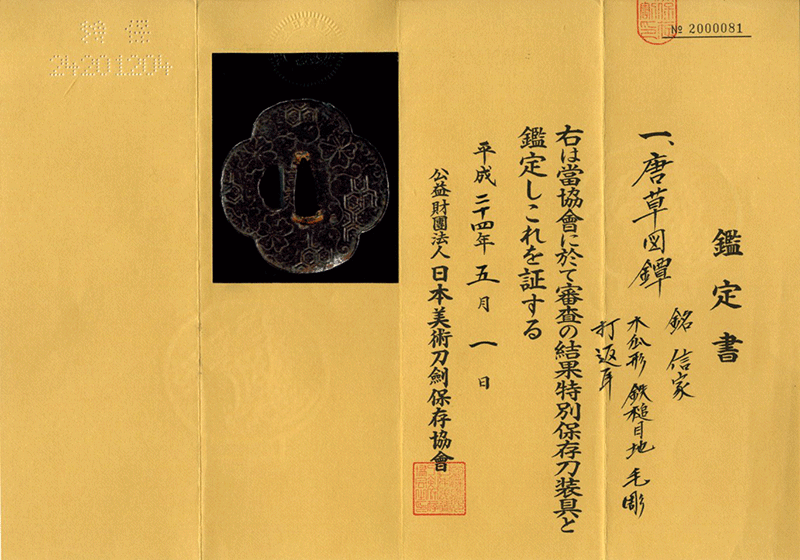 № 2000081
鑑定書
一、唐草図鐔
銘 信家
木瓜形 鉄槌目地 毛彫
打返耳
右は當協會に於て審査の結果特別保存刀装具と
鑑定しこれを証する
平成二十四年五月一日
公益財團法人 日本美術刀劍保存協會
24201204